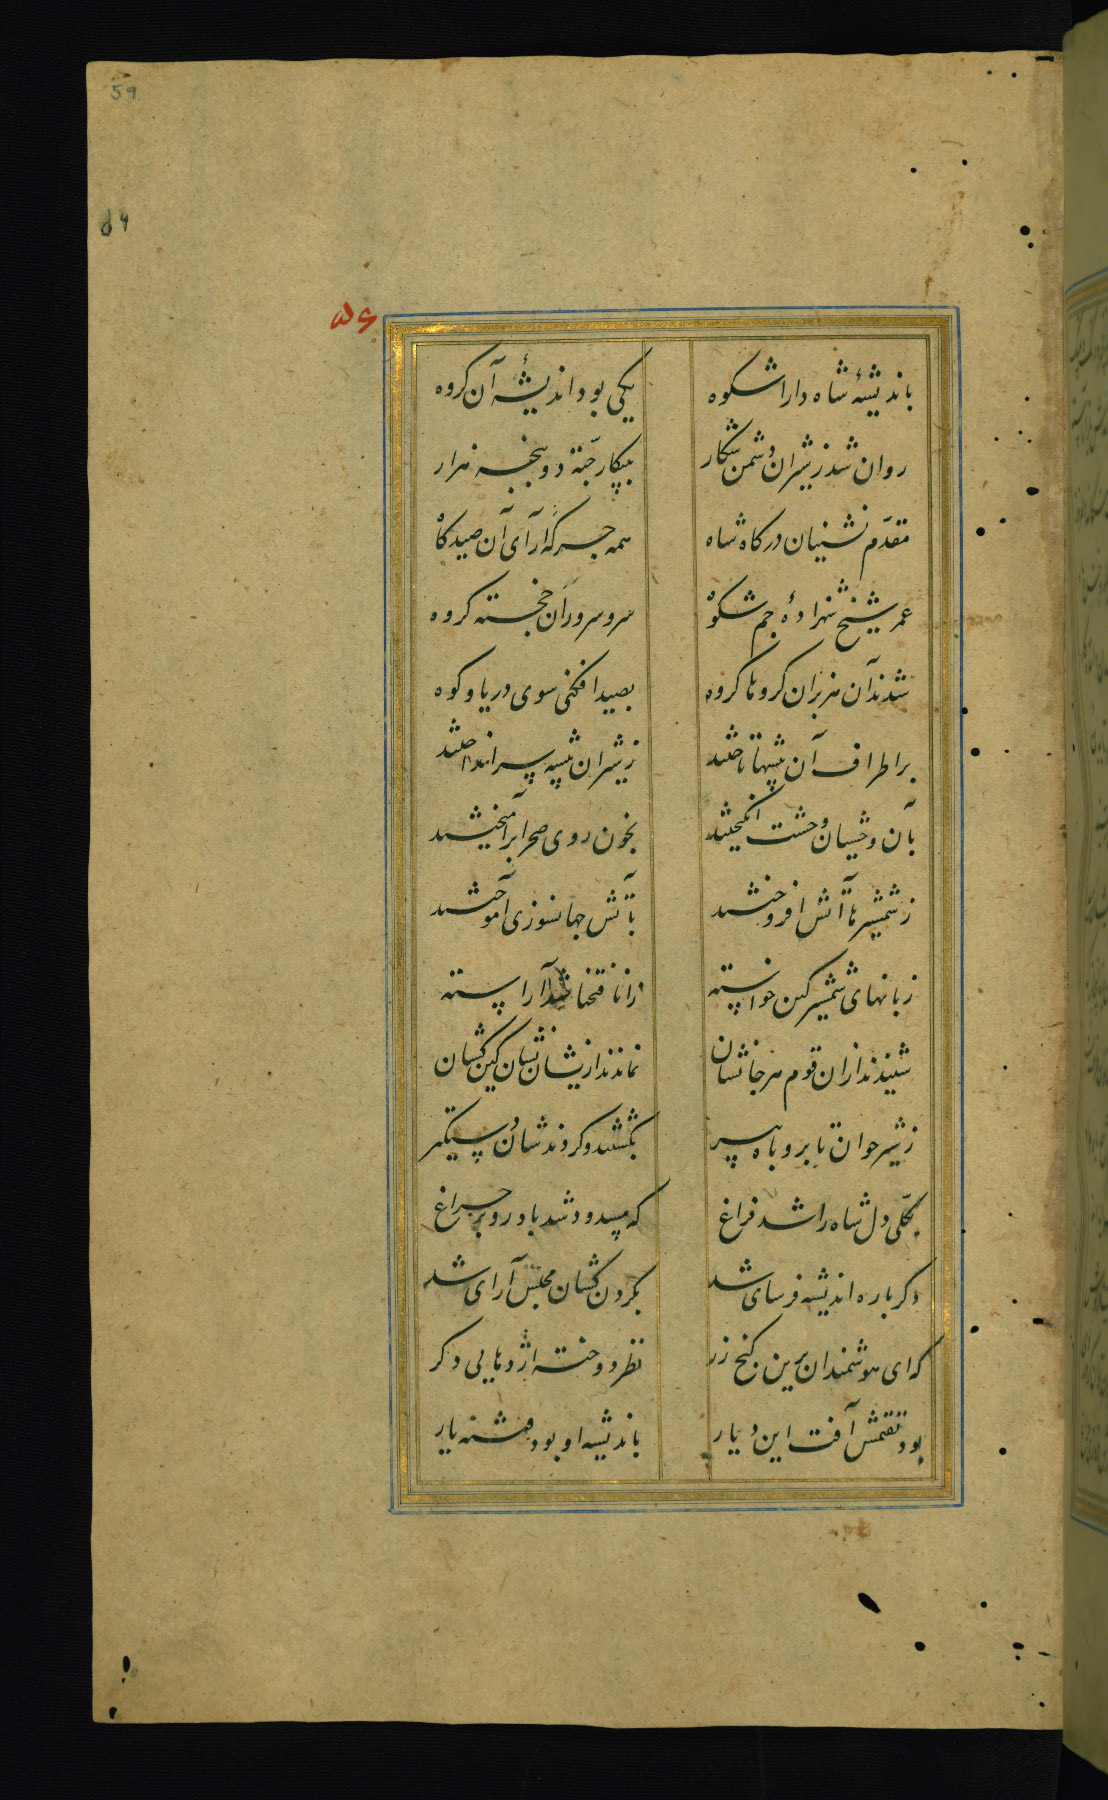 59
۵۶
باندیشهٔ شاه دارا شکوه یکی بود اندیشهٔ آن کروه
روان شد ز شیران دشمن شکار بپیکار جته دو پنجه هزار
مقدّم نشینان درکاه شاه همه جرکه آرای آن صیدکاه
عمر شیخ شهزادهٔ جم شکوه سر سروران خجسته کروه
شدند آن هزبران کروها کروه بصید افکنی سوی دریا و کوه
بر اطراف آن بیشها تاختند ز شیران بیشه سپر انداختند
بآن وحشیان وحشت انکیختند بخون روی صحرا برآمیختند
ز شمشیرها آتش افروختند بآتش جهانسوزی آموختند
زبانهای شمشیر کین خواسته آراسته
شنیدند از آن قوم هر جا نشان نماندند از یشان نشان کین کشان
ز شیر جوان تا بروباه پیر بکشتند و کردندشان دستکیر
بکلی دل شاه را شد فراغ که مسدود شد باد رو بر چراغ
دکرباره اندیشه فرسای شد بکردن کشان مجلس آرای شد
که ای هوشمندان برین کنج زر نظر دوخته اژدهایی دکر
بود تقتمش آفت این دیار باندیشه او بود فتنه یار